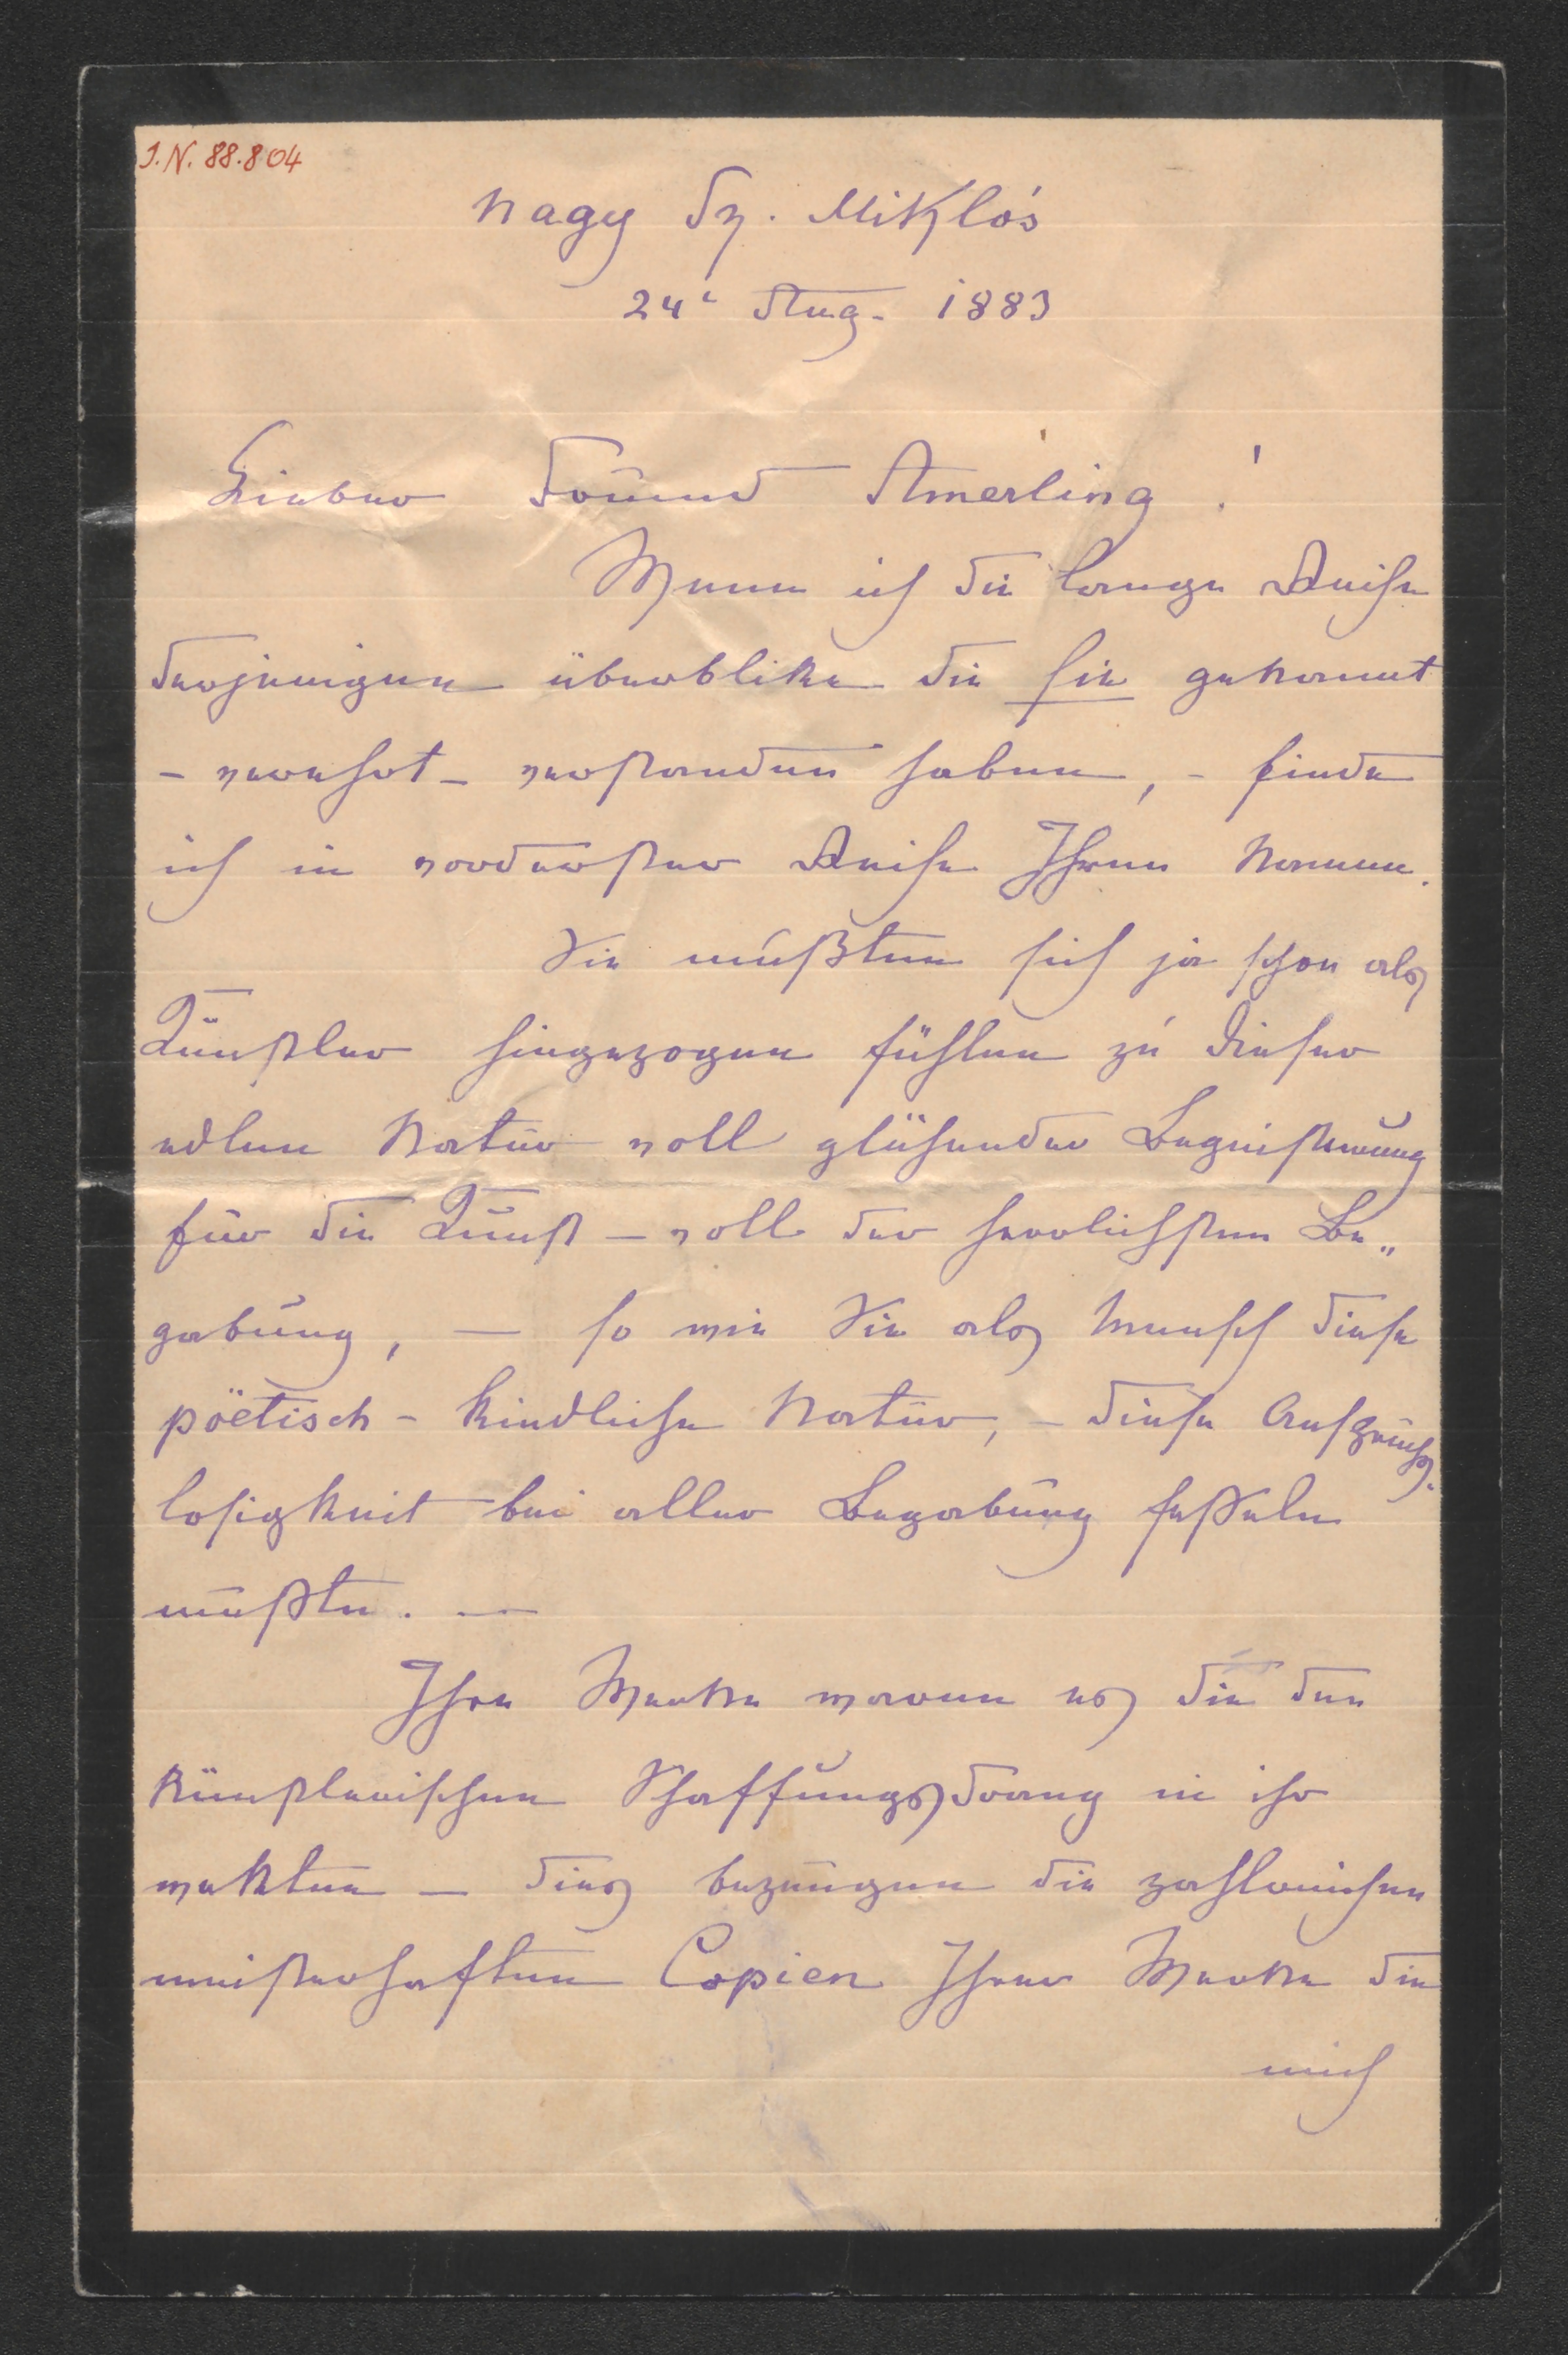 I.N. 88.804
Nagy Sz. Miklós
24t Aug. 1883
Lieber Freund Amerling!
Wenn ich die lange Reihe
derjenigen überblike die sie gekannt
– verehrt – verstanden haben, – finde
ich in vorderster Reihe Ihren Namen.
Sie mußten sich ja schon als
Künstler hingezogen fühlen zu dieser
edlen Natur voll glühender Begeisterung
für die Kunst – voll der herrlichsten Be„
gabung, — so wie Sie als Mensch diese
pöetisch – kindliche Natur, – diese Anspruchs.
losigkeit bei aller Begabung fesseln
mußte. —
Ihre Werke waren es die den
künstlerischen Schaffungsdrang in ihr
wekten – dies bezeugen die zahlreichen
meisterhaften Copien Ihrer Werke die
mich